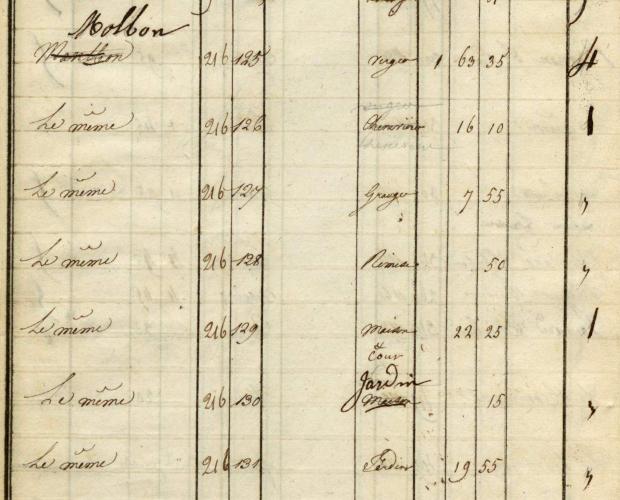 Molbon
Monthon 216 125 verger 1 63 35 4
Le même 216 126 Chenevière 16 10 1
Le même 216 127 Grange 7 55 "
Le même 216 128 Remise 50 "
Le même 216 129 maison 22 25 1
et
Cour
Jardin
Le même 216 130 maison 15 "
Le même 216 131 Jardin 19 55 "